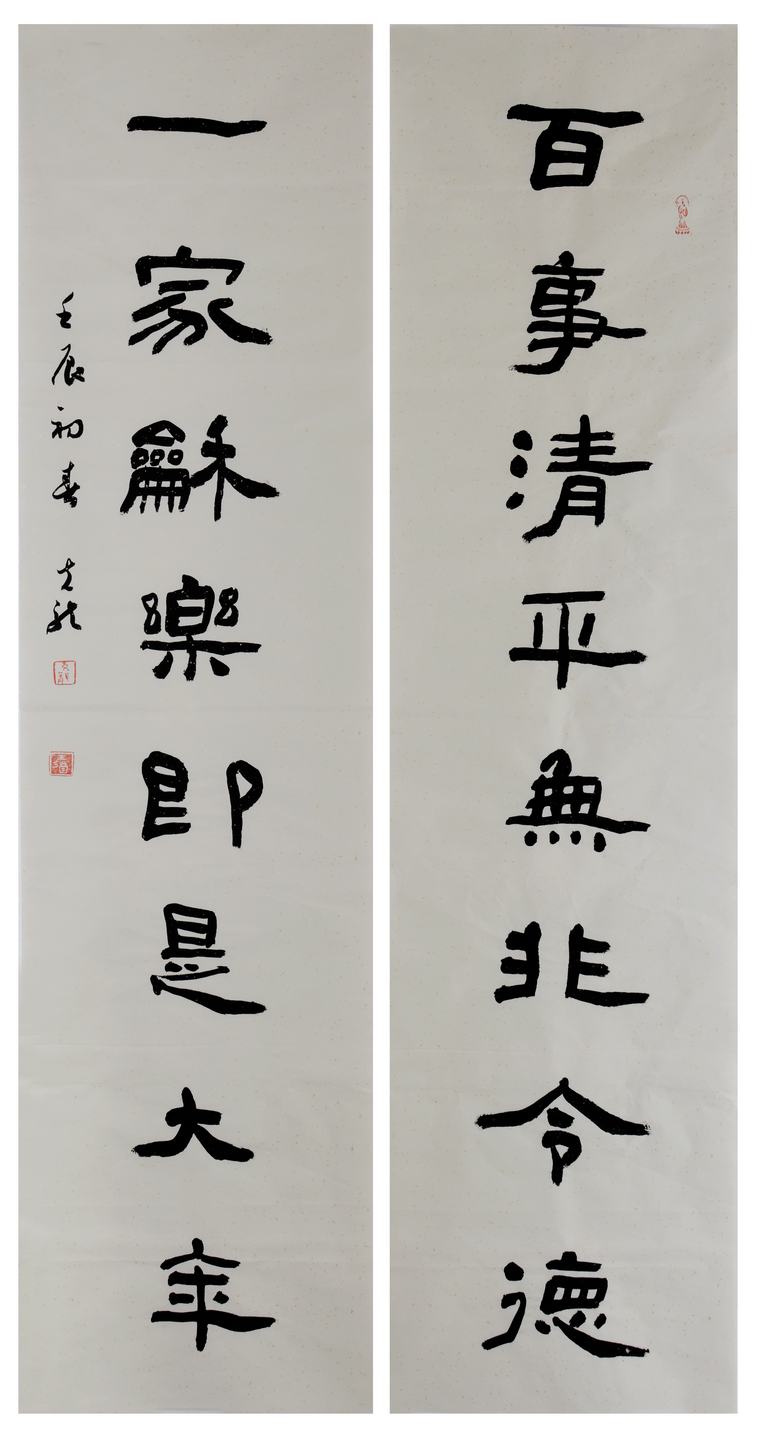 百事清平無非令德
一家龢樂即是大年
壬辰初春 克龍